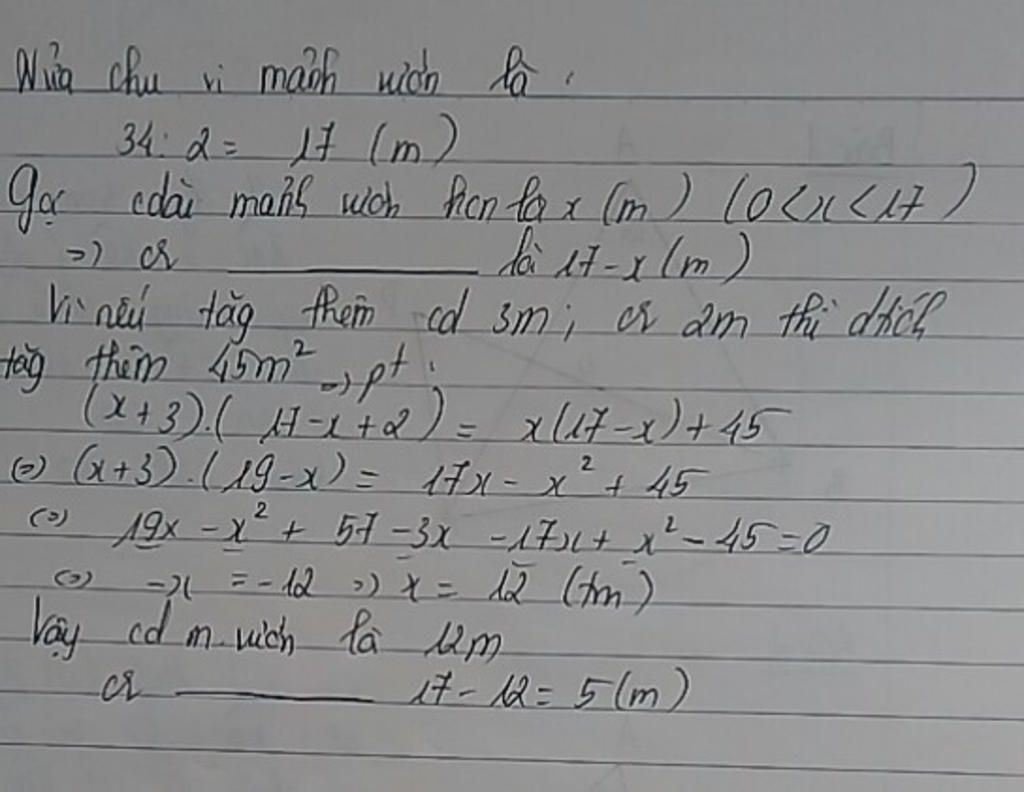 Nửa chu vi mảnh vườn là :
34 : 2 = 17 (m)
Gọi cdài mảnh vườn hcn là x (m) (0 < x < 17)
=> cr ――― là 17 - x (m)
Vì nếu tăg thêm cd 3m ; cr 2m thì dtích
tăg thêm 45m² => pt :
(x + 3).( 17 - x + 2) = x(17 - x) + 45
(=) (x+3).(19 - x) = 17x - x² + 45
(=) 19x - x² + 57 - 3x - 17x + x² - 45 = 0
(=) -x = -12 => x = 12 (tm)
Vậy cd m.vườn là 12m
cr ――― 17 - 12 = 5 (m)